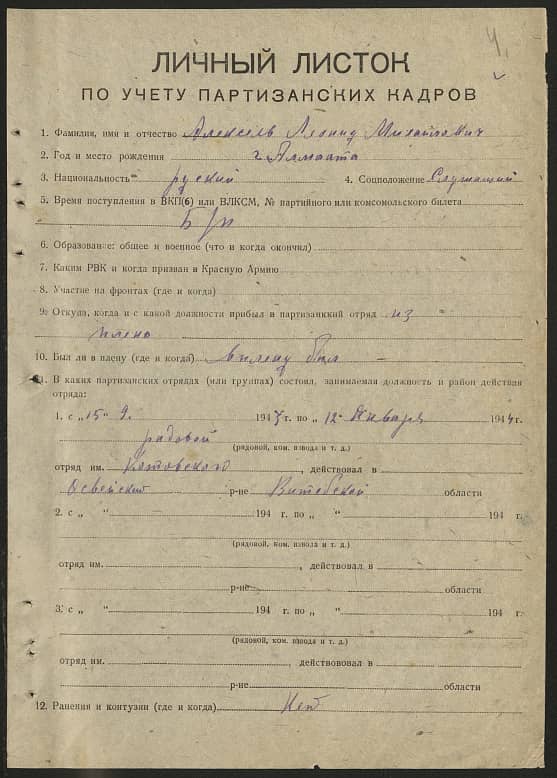 4.
ЛИЧНЫЙ ЛИСТОК
ПО УЧЕТУ ПАРТИЗАНСКИХ КАДРОВ
1. Фамилия, имя и отчество Алексель Леонид Михайлович
2. Год и место рождения г. Алмаата
3. Национальность руский 4. Соцположение Служащий
5. Время поступления в ВКП(б) или ВЛКСМ, № партийного или комсомольского билета
Б/п
6. Образование: общее и военное (что и когда окончил)
7. Каким РВК и когда призван в Красную Армию
8. Участие на фронтах (где и когда)
9. Откуда, когда и с какой должности прибыл в партизанкий отряд из
плена
10. Был ли в плену (где и когда) вплену был —
11. В каких партизанских отрядах (или группах) состоял, занимаемая должность и район действия
отряда:
1. с „15" 9. 1943 г. по „12" Января 1944 г.
рядовой
(рядовой, ком. взвода и т. д.)
отряд им. Котовского, действовал в
Освейский р-не Витебской области
2. с „ " 194 г. по „ " 194 г.
(рядовой, ком. взвода и т. д.)
отряд им., действовал в
р-не области
3. с „ " 194 г. по „ " 194 г.
(рядовой, ком. взвода и т. д.)
отряд им., действововал в
р-не области
12. Ранения и контузии (где и когда) Нет